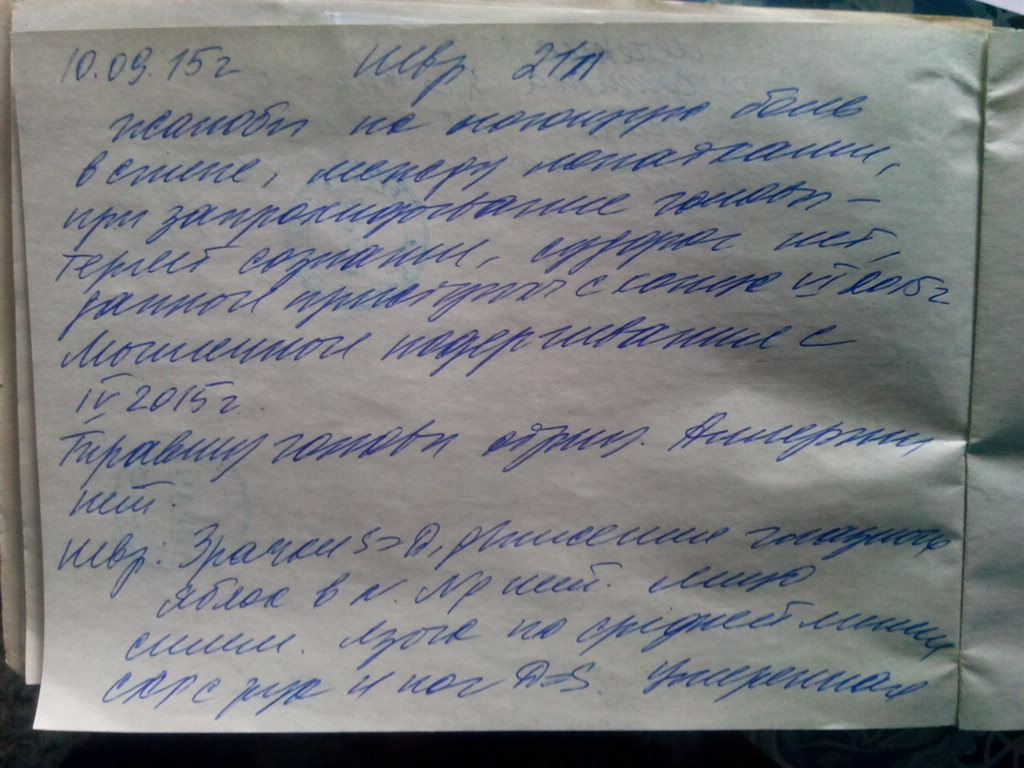 10.09.15г Невр 21л
Жалобы на ноющую боль
в спине, между лопатками,
при запрокидывание головы –
теряет сознание, судорог нет,
данные приступы с конца VI 2015г
Мышечные подергивания с
IV 2015г.
Травмы головы отриц. Аллергии
нет.
Невр: Зрачки S>D, движение глазных
яблок в N. Ny нет. Лицо
симм. Язык по средней линии
СХР с рук и ног D=S. Умеренная